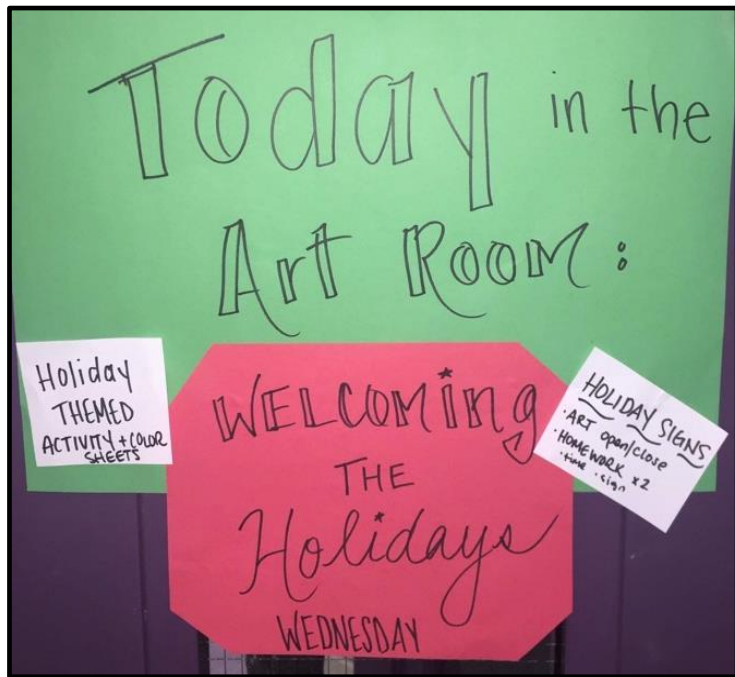 Today in the
Art Room:
Holiday
THEMED
ACTIVITY + COLOR
SHEETS
WELCOMING
THE
Holidays
WEDNESDAY
HOLIDAY SIGNS
· ART open/close
· HOMEWORK x2
· time · sign